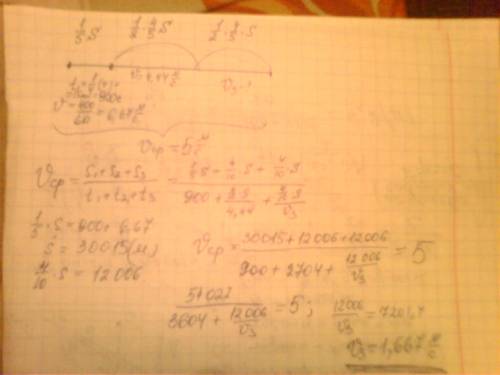 1/5 S   1/2 · 4/5 · S   1/2 · 4/5 · S
V₃ - ?
Vср = 5 м/с
Vср = (S₁+S₂+S₃)/(t₁+t₂+t₃) = (1/5 S + 4/10 · S + 4/10 · S)/(900 + (4/10 · S)/4,44 + (4/10 · S)/V₃)
1/5 · S = 900 · 6,67
S = 30015 (м)
4/10 · S = 12006
Vср = (30015+12006+12006)/(900 + 2704 + 12006/V₃) = 5
54027/(3604 + 12006/V₃) = 5 ;   12006/V₃ = 7201,4
V₃ = 1,667 м/с